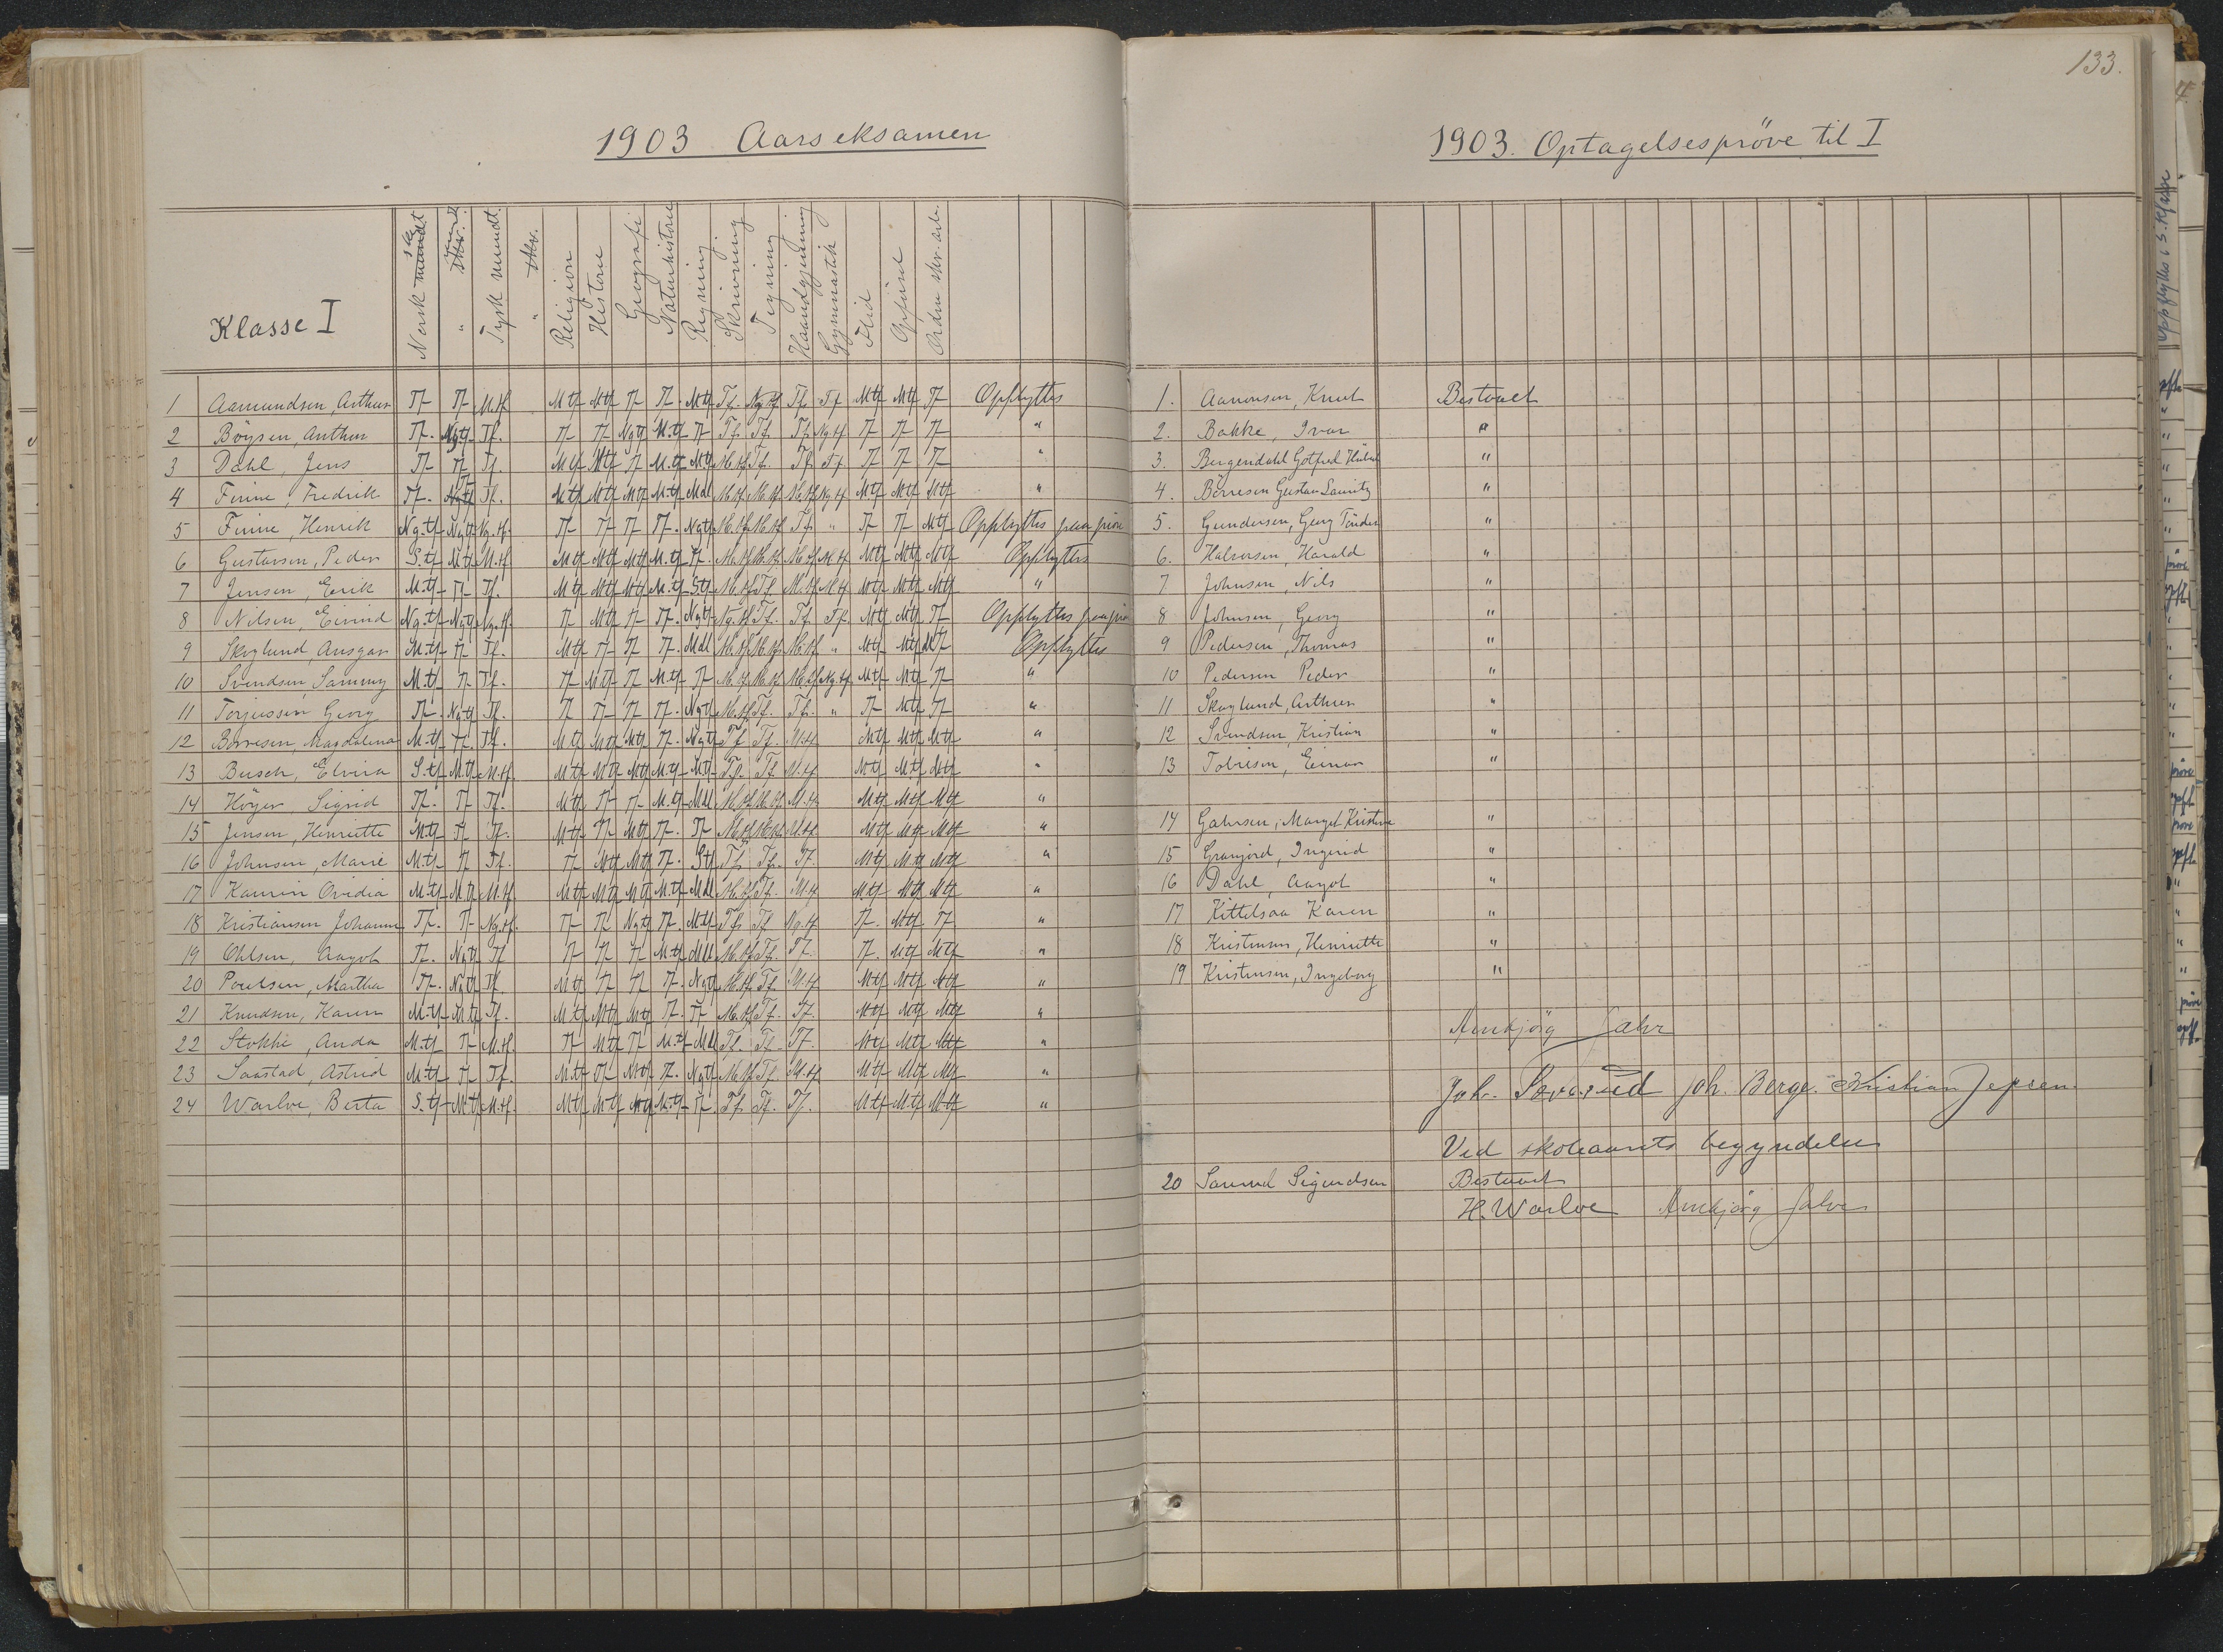 1903 Aarseksamen
Klasse I
Norsk mundt
" skr.
Tysk mundt.
" skr.
Religion
Historie
Geografi
Naturhistorie
Regning
Skrivning
Tegning
Haandgjerning
Gymnastik
Flid
Opførsel
Orden skr. arb.
1 Aamundsen, Arthur Tf Tf M.tf Mtf Mtf Tf Tf. Mtf Tf. Ng.tf Tf. Tf Mtf Mtf Tf Opflyttes
2 Böysen, Anthon Tf. Ngtf Tf. Tf Tf Ngtf M.tf Tf Tf. Tf. Tf. Ng.tf Tf Tf Tf "
3 Dahl, Jens Tf Tf Tf. Mtf Mtf Tf M.tf M.tf M.tf Tf. Tf. Tf. Tf Tf Tf "
4 Finne, Fredrik Tf. Tf Tf. Mtf Mtf Mtf M.tf Mdl M.tf M.tf M.tf Ng.tf Mtf Mtf Mtf "
5 Finne, Henrik Ng.tf Ngtf Ng.tf. Tf Tf Tf Tf. Ngtf M.tf M.tf Tf. " Tf Tf Mtf Opflyttes paa prøve
6 Gustavsen, Peder S.tf Mtf M.tf Mtf Mtf Mtf M.tf Tf. M.tf M.tf M.tf M.tf Mtf Mtf Mtf Opflyttes
7 Jensen, Erik M.tf Tf Tf. Mtf Mtf Mtf M.tf Stf M.tf Tf. M.tf M.tf Mtf Mtf Mtf "
8 Nilsen, Eivind Ng.tf Ngtf Ng.tf. Tf Mtf Tf Tf. Ngtf Ng.tf Tf. Tf. Tf. Mtf Mtf Tf Opflyttes
9 Skoglund, Ansgar M.tf Tf Tf. Mtf Tf Tf Tf. Mdl M.tf M.tf M.tf " Mtf Mtf Tf Opflyttes
10 Svendsen, Sammy M.tf Tf Tf. Tf Mtf Tf M.tf Tf M.tf M.tf M.tf Ng.tf Mtf Mtf Tf "
11 Torjussen Georg Tf. Ngtf Tf. Tf Tf Tf Tf. Ngtf M.tf Tf. Tf. " Tf Mtf Tf "
12 Börresen, Magdalena M.tf Tf. Tf. Mtf Mtf Mtf Tf. Ngtf Tf Tf. M.tf Mtf Mtf Mtf "
13 Busch, Elvira S.tf M.tf M.tf. Mtf Mtf Mtf M.tf Mtf Tf. Tf M.tf Mtf Mtf Mtf "
14 Höyer Sigrid Tf. Tf Tf. Mtf Tf Tf M.tf Mdl M.tf M.tf M.tf Mtf Mtf Mtf "
15 Jensen, Henriette M.tf Tf Tf. Mtf Tf Mtf Tf. Tf M.tf M.tf M.tf Mtf Mtf Mtf "
16 Johnsen, Marie M.tf Tf Tf. Tf Mtf Mtf Tf. Stf Tf. Tf. Tf. Mtf Mtf Mtf "
17 Kaurin Ovidia M.tf M.tf M.tf Mtf Mtf Mtf M.tf Mdl M.tf Tf. M.tf Mtf Mtf Mtf "
18 Kristiansen Johanne Tf. Tf Ng.tf. Tf Tf Ngtf Tf. Mtf Tf. Tf Ng.tf Tf. Mtf Tf "
19 Ohlsen, Aagot Tf. Ngtf Tf Tf Tf Tf M.tf Mdl M.tf Tf. Tf. Tf. Mtf Mtf "
20 Poulsen, Martha Tf. Ngtf Tf. Mtf Tf Tf Tf. Ngtf M.tf Tf. M.tf Mtf Mtf Mtf "
21 Knudsen, Karen M.tf M.tf Tf. Mtf Mtf Mtf Tf. Tf M.tf Tf. Tf. Mtf Mtf Mtf "
22 Stokke, Anda M.tf Tf M.tf. Tf Mtf Tf M.tf Mdl Tf. Tf Tf. Mtf Mtf Mtf "
23 Saastad, Astrid M.tf Tf Tf. M.tf Tf Mtf Tf. Ngtf M.tf Tf. M.tf Mtf Mtf Mtf "
24 Warloe, Berta S.tf M.tf M.tf. Mtf Mtf Mtf M.tf Tf. Tf. Tf. Tf. Mtf Mtf Mtf "
133.
1903. Optagelsespröve til I
1. Aanonsen, Knut Bestaaet
2. Bakke, Ivar "
3. Bergendahl Gotfred "
4. Börresen Gustav Lauritz "
5. Gundersen, Georg Tönder "
6. Halvorsen, Harald "
7 Johnsen, Nils "
8 Johnsen, Georg "
9 Pedersen, Thomas "
10 Pedersen Peder "
11 Skoglund, Arthur "
12 Svendsen, Kristian "
13 Tobiesen, Einar "
14 Gahrsen, Margit Kristine "
15 Granjord, Ingerid "
16 Dahl, Aagot "
17 Kittelsaa Karen "
18 Kristensen, Henriette "
19 Kristensen, Ingeborg "
Annbjörg Jahr
Joh. Joh. Berge. Kristian Jepsen.
Ved skoleaarets begyndelse
20 Samuel Sigurdsen Bestaaet
H. Warloe Annbjörg Jahr